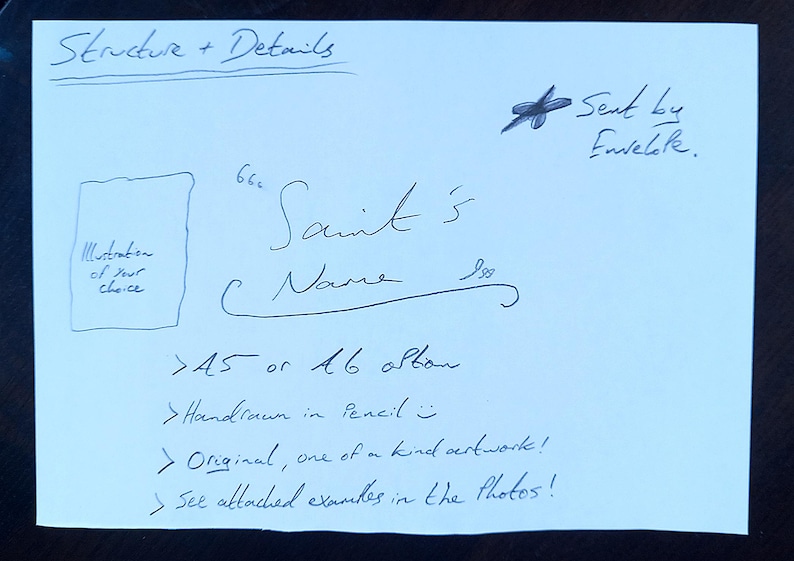 Structure + Details
Sent by
Envelope.
Saint's
Name
Illustration
of your
choice
> A5 or A6 option
> Handrawn in Pencil :)
> Original, one of a kind artwork!
> See attached examples in the Photos!